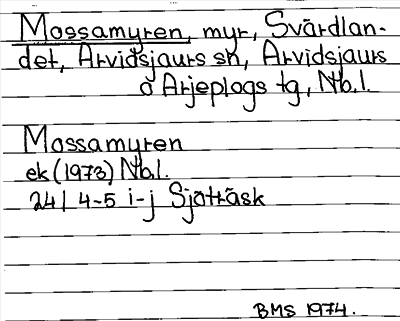 Mossamyren, myr, Svärdlan-
det, Arvidsjaurs sn, Arvidsjaurs
o Arjeplogs tg, Nb.l.
Mossamyren
ek (1973) Nb.l.
24I 4-5 i-j Sjöträsk
BMS 1974.